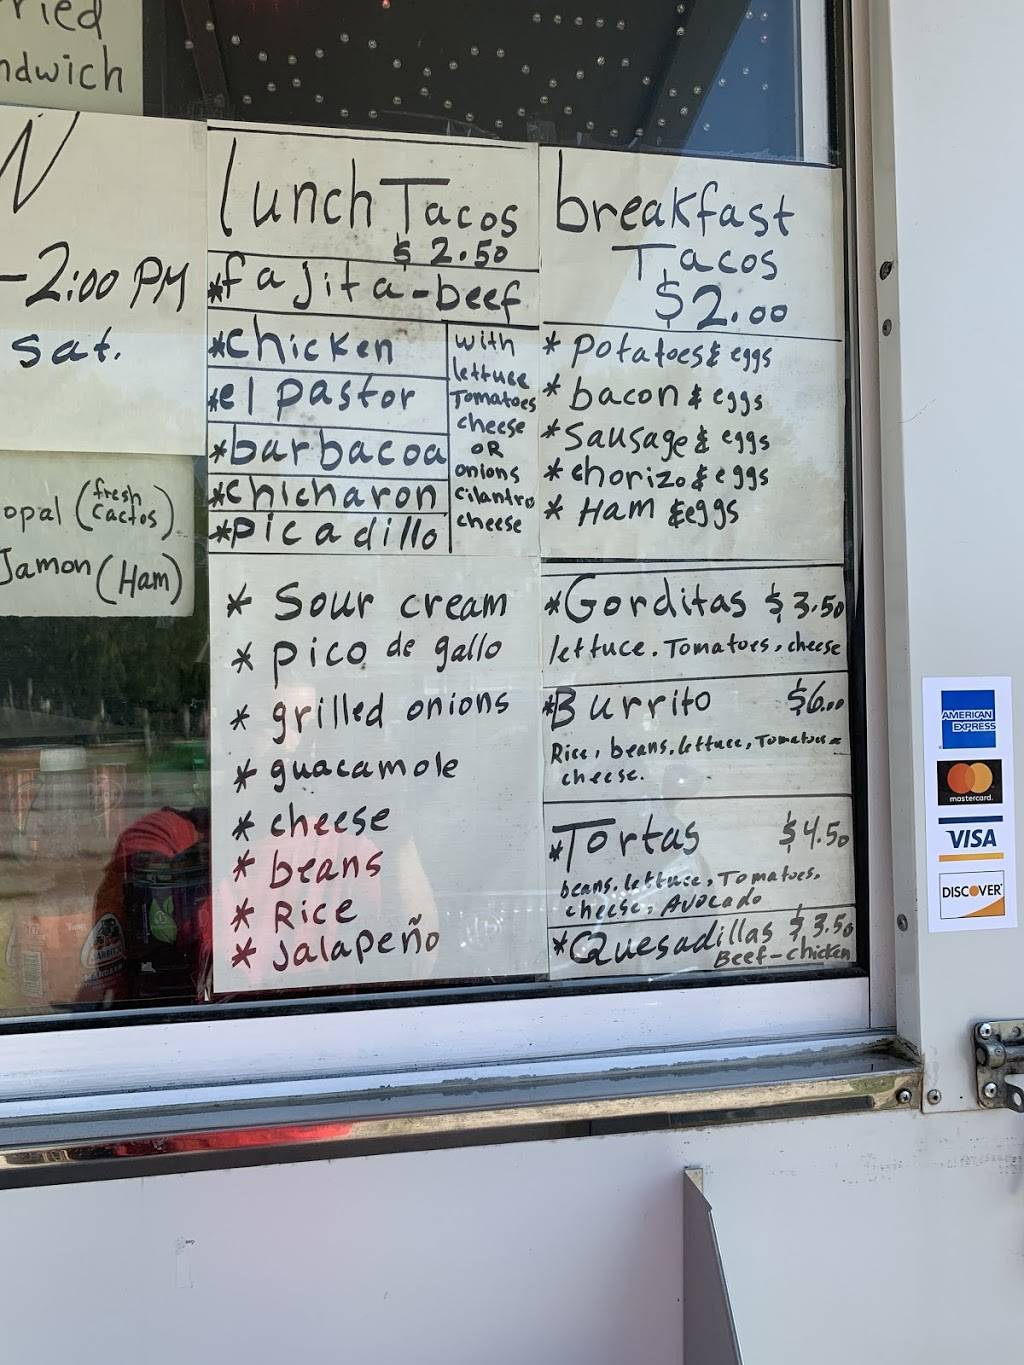 ried
ndwich
N
-2:00 PM
sat.
opal (fresh cactos)
Jamon (Ham)
lunch Tacos
$ 2.50
*fajita-beef
*chicken
*el pastor
*barbacoa
*chicharon
*picadillo
with
lettuce
Tomatoes
cheese
OR
onions
cilantro
cheese
* Sour cream
* pico de gallo
* grilled onions
* guacamole
* cheese
* beans
* Rice
* Jalapeño
breakfast
Tacos
$2.00
* potatoes & eggs
* bacon & eggs
* Sausage & eggs
* chorizo & eggs
* Ham & eggs
*Gorditas $3.50
lettuce. Tomatoes, cheese
*Burrito $6.00
Rice, beans, lettuce, Tomatoes
cheese.
*Tortas $4.50
beans, lettuce, Tomatoes,
cheese, Avocado
*Quesadillas $3.50
Beef-chicken
AMERICAN
EXPRESS
mastercard
VISA
DISCOVER